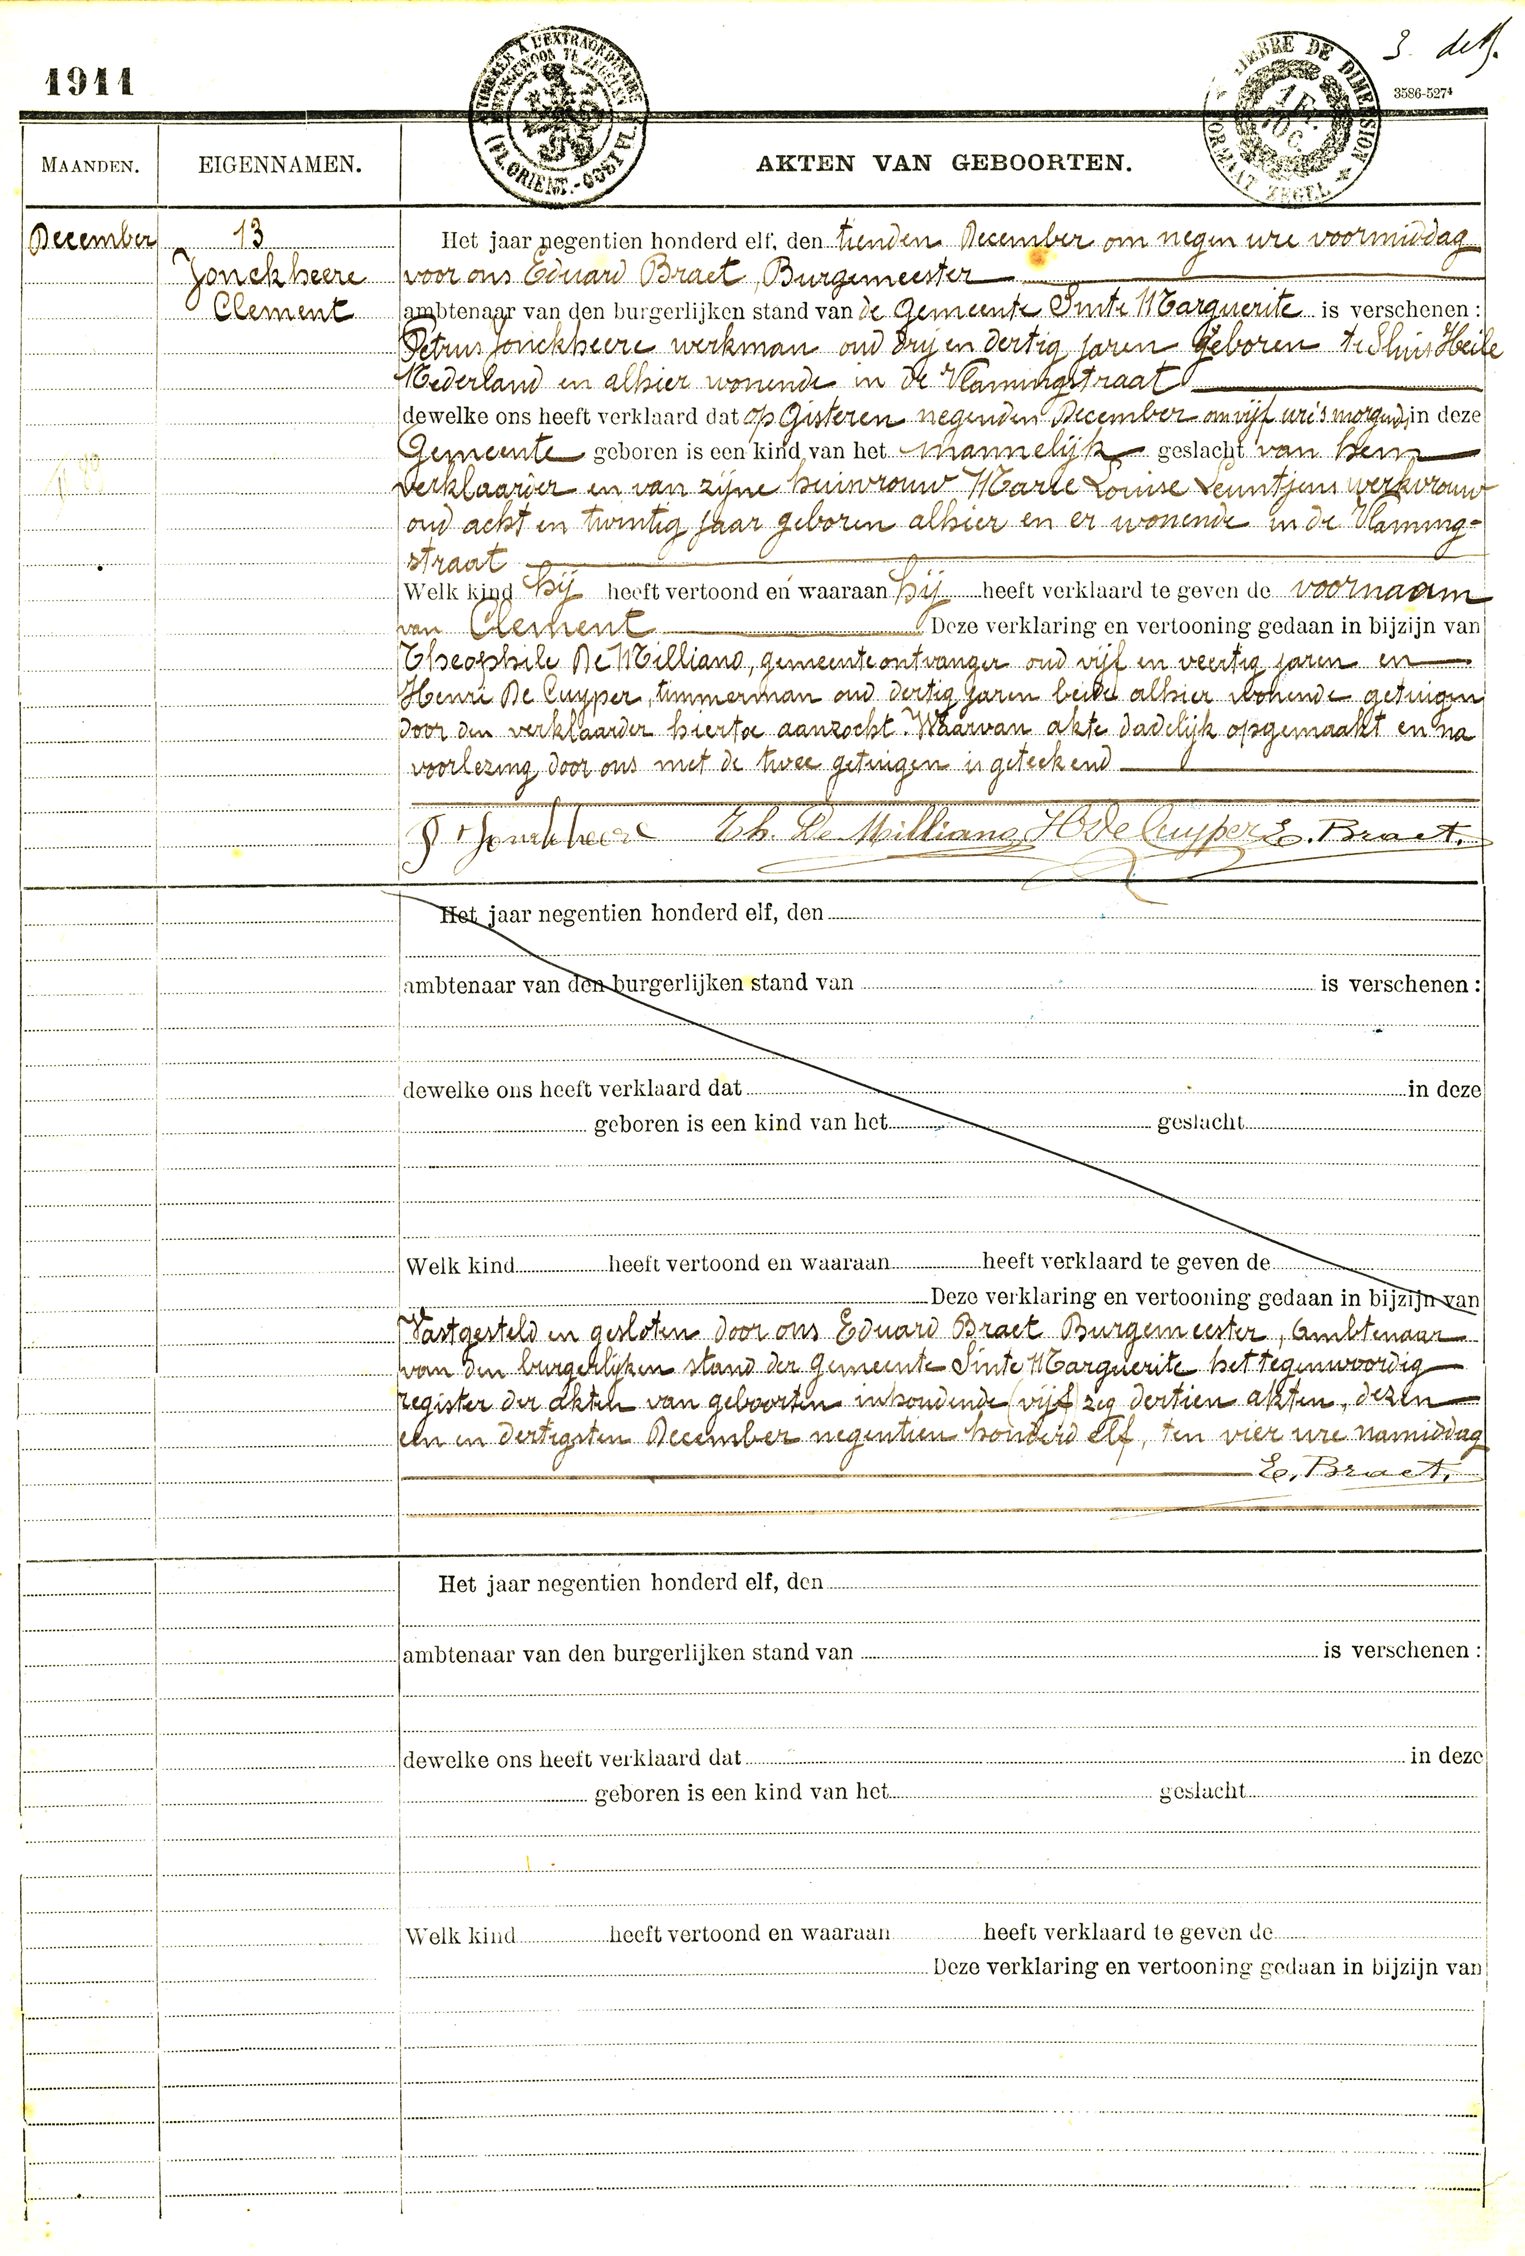 3 de
1911
3586-527⁴
TIMBRE DE DIMENSION
FORMAAT ZEGEL
MAANDEN.
EIGENNAMEN.
AKTEN VAN GEBOORTEN.
December 13 Het jaar negentien honderd elf, den tienden December om negen ure voormiddag
Jonckheere voor ons Eduard Braet, Burgemeester
Clement ambtenaar van den burgerlijken stand van de Gemeente Sinte Marguerite is verschenen :
Petrus Jonckheere werkman oud drij en dertig jaren geboren te Sluis Heile
Nederland en alhier wonende in de Vlamingstraat
dewelke ons heeft verklaard dat op Gisteren negenden December om vijf uri's morgens in deze
Gemeente geboren is een kind van het mannelijk geslacht van hem
verklaarder en van zijne huisvrouw Marie Louise Leuntjens werkvrouw
oud acht en twintig jaar geboren alhier en er wonende in de Vlaming-
straat
Welk kind hij heeft vertoond en waaraan hij heeft verklaard te geven de voornaam
van Clement Deze verklaring en vertooning gedaan in bijzijn van
Theophile De Milliano, gemeenteontvanger oud vijf en veertig jaren en
Henri De Cuyper, timmerman oud dertig jaren beide alhier wonende getuigen
door den verklaarder hiertoe aanzocht. Waarvan akte dadelijk opgemaakt en na
voorlezing door ons met de twee getuigen is geteekend
Jonckheere Th. De Milliano H De Cuyper E. Braet.
Het jaar negentien honderd elf, den
ambtenaar van den burgerlijken stand van is verschenen :
dewelke ons heeft verklaard dat in deze
geboren is een kind van het geslacht
Welk kind heeft vertoond en waaraan heeft verklaard te geven de
Deze verklaring en vertooning gedaan in bijzijn van
Vastgesteld en gesloten door ons Eduard Braet Burgemeester, Ambtenaar
van den burgerlijken stand der Gemeente Sinte Marguerite het tegenwoordig
register der akten van geboorten inhoudende (vijf) zeg dertien akten, dezen
een en dertigsten December negentien honderd elf, ten vier ure namiddag
E. Braet.
Het jaar negentien honderd elf, den
ambtenaar van den burgerlijken stand van is verschenen :
dewelke ons heeft verklaard dat in deze
geboren is een kind van het geslacht
Welk kind heeft vertoond en waaraan heeft verklaard te geven de
Deze verklaring en vertooning gedaan in bijzijn van